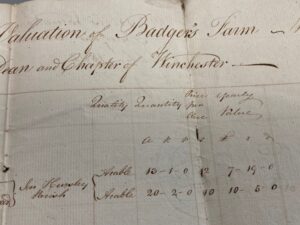 Valuation of Badger's Farm
Dean and Chapter of Winchester
Quality Quantity Price per Acre Yearly Value
a r p s £ s
In Hursley Parish
Arable 13-1-0 12 7-19-0
Arable 20-2-0 10 10-5-0